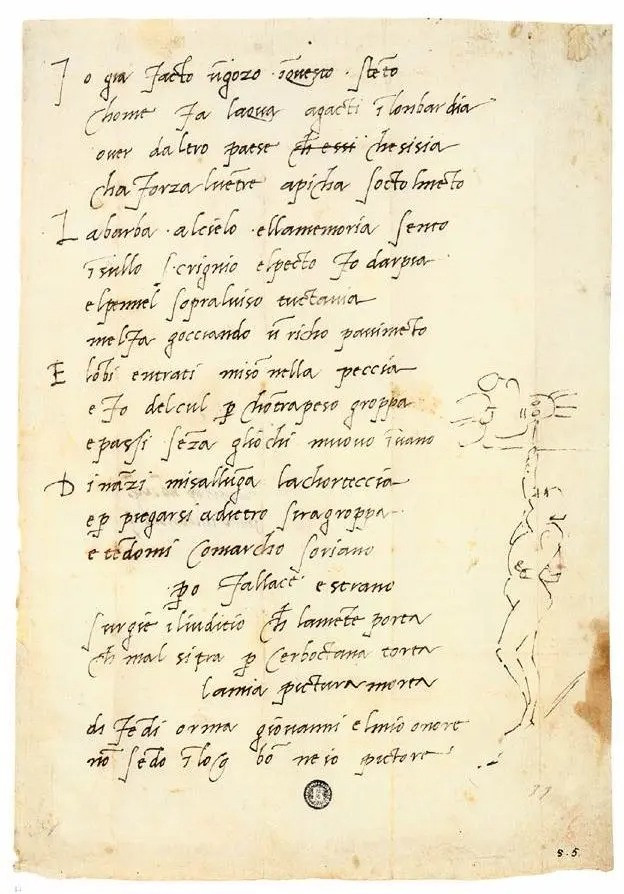 Io gia facto ũgozo ĩquesto stẽto
chome fa lacqua agacti ĩlonbardia
over daltro paese ch essi chesisia
cha forza luẽtre apicha socto lmẽto
Labarba alcielo ellamemoria sento
ĩsullo scrignio elpecto fo darpia
elpennel sopraluiso tuctauia
melfa gocciando ũ richo pauimẽto
E lobi entrati misõ nella peccia
e fo delcul ꝑ chõtrapeso groppa
epassi sẽza gliochi muouo ĩuano
Dinãzi misallũga lachorteccia
eꝑ piegarsi adietro siragroppa
e tẽdomi comarcho soriano
ꝑo fallace e strano
surgie iliuditio ch̄ lamẽte porta
ch̄ mal si tra ꝑ cerboctana torta
lamia pictura morta
di fedi orma giovanni elmio onore
nõ sẽdo ĩ bõ ne io pictore
s.5